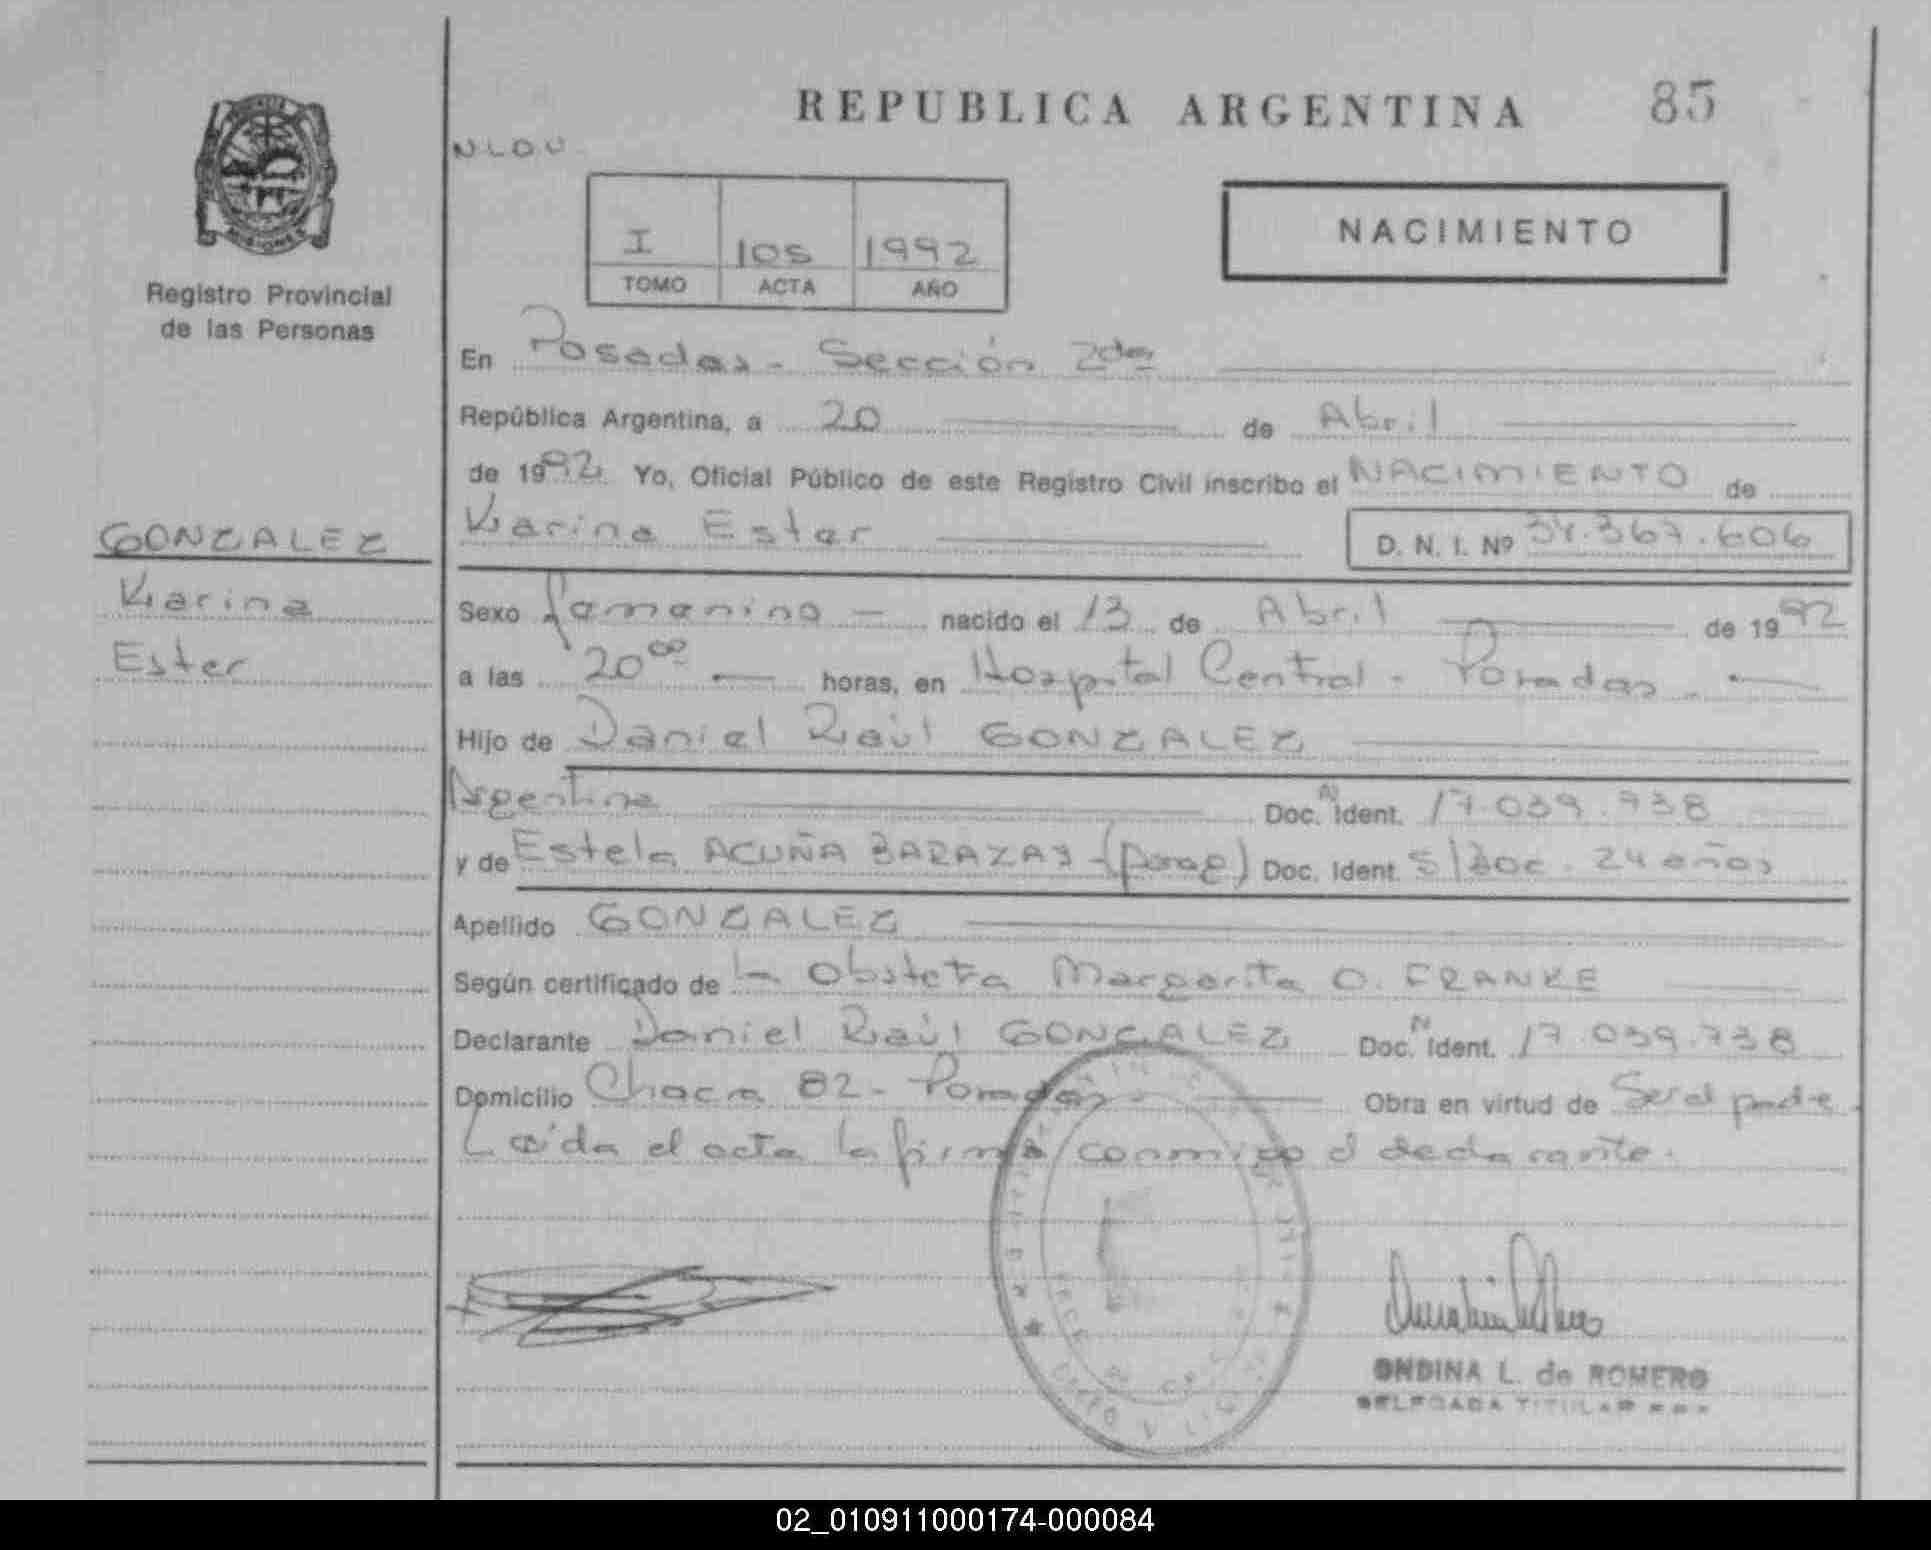 REPUBLICA ARGENTINA 85
N.L.O.U.
MISIONES
Registro Provincial
de las Personas
I 105 1992
TOMO ACTA AÑO
NACIMIENTO
En Posadas - Sección 2da
República Argentina, a 20 de Abril
de 1992 Yo, Oficial Público de este Registro Civil inscribo el NACIMIENTO de
GONZALEZ
Karina Ester D. N. I. Nº 34.367.606
Karina
Sexo femenino — nacido el 13 de Abril de 1992
Ester
a las 20⁰⁰ horas, en Hospital Central - Posadas. -
Hijo de Daniel Raúl GONZALEZ
Argentina Doc. N Ident. 17.039.738
y de Estela ACUÑA BARAZAY - (parag) Doc. Ident. S/Doc. 24 años
Apellido GONZALEZ
Según certificado de la Obstetra Margarita O. FRANKE
Declarante Daniel Raúl GONZALEZ Doc. N Ident. 17.039.738
Domicilio Chacra 82 - Posadas - Obra en virtud de Ser el padre.
Leída el acta la firma conmigo el declarante.
ONDINA L. de ROMERO
DELEGADA TITULAR
02_010911000174-000084